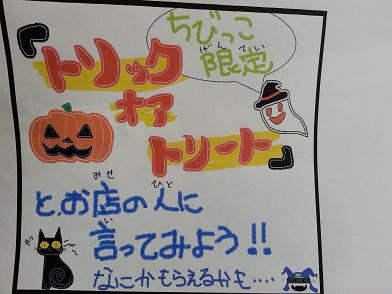 ちびっこ
限定
げんてい
『トリック
オア
トリート』
と、お店の人に
みせ ひと
言ってみよう!!
い
なにかもらえるかも‥‥